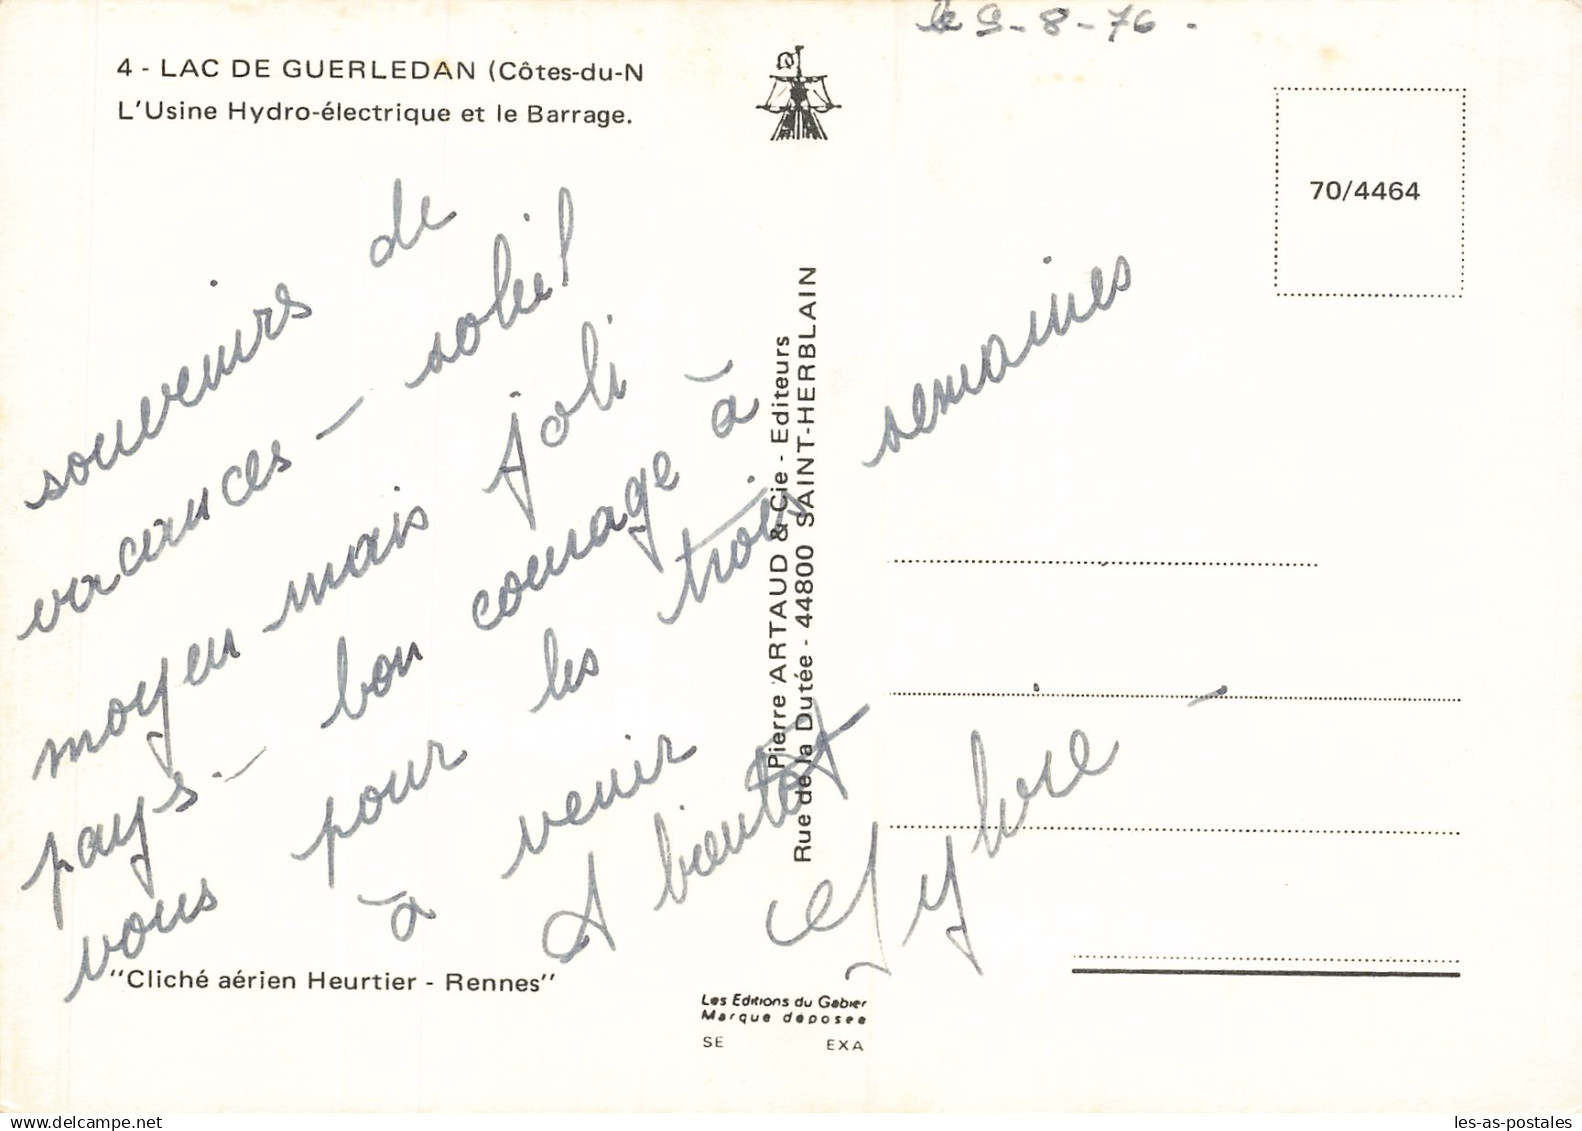 le 9-8-76.
4 - LAC DE GUERLEDAN (Côtes-du-N
L'Usine Hydro-électrique et le Barrage.
70/4464
souvenirs de
vacances - soleil
moyen mais joli
pays - bon courage à
vous pour les trois semaines
à venir
A bientôt
Sylvie -
Pierre ARTAUD & Cie - Editeurs
Rue de la Dutée - 44800 SAINT-HERBLAIN
"Cliché aérien Heurtier - Rennes"
Les Editions du Gabier
Marque déposée
SE EXA
les-as-postales